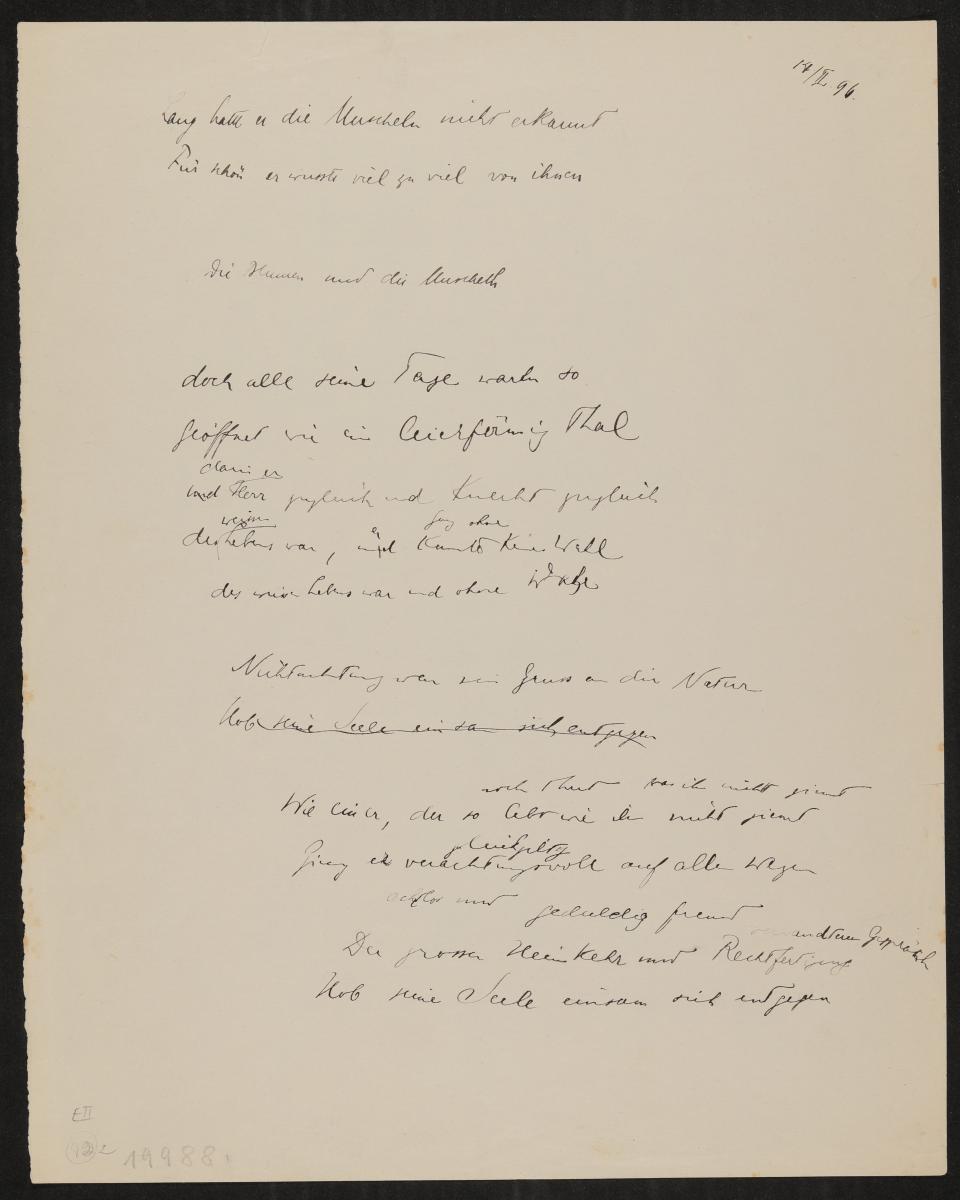 14/II. 96.
Lang hatte er die Muscheln nicht erkannt
Für schön er wusste viel zu viel von ihnen
Die und die Muscheln
doch alle seine Tage waren so
geöffnet wie ein leierförmig Thal
darin er
und Herr zugleich und Knecht zugleich
weisen
ganz ohne
des Lebens war, und Keine Wahl
des weisen Lebens war und ohne
Nichtachtung war sein Gruss an die Natur
Hob seine Seele einsam sich entgegen
noch thut was ihm nicht ziemt
Wie einer, der so lebt wie ihm nicht ziemt
gleichgiltig
Ging er verachtungsvoll auf allen Wegen
achtlos und geduldig fremd
verwandtem Gespräch
Der grossen Heimkehr und Rechtfertigung
Hob seine Seele einsam sich entgegen
EII
19988.